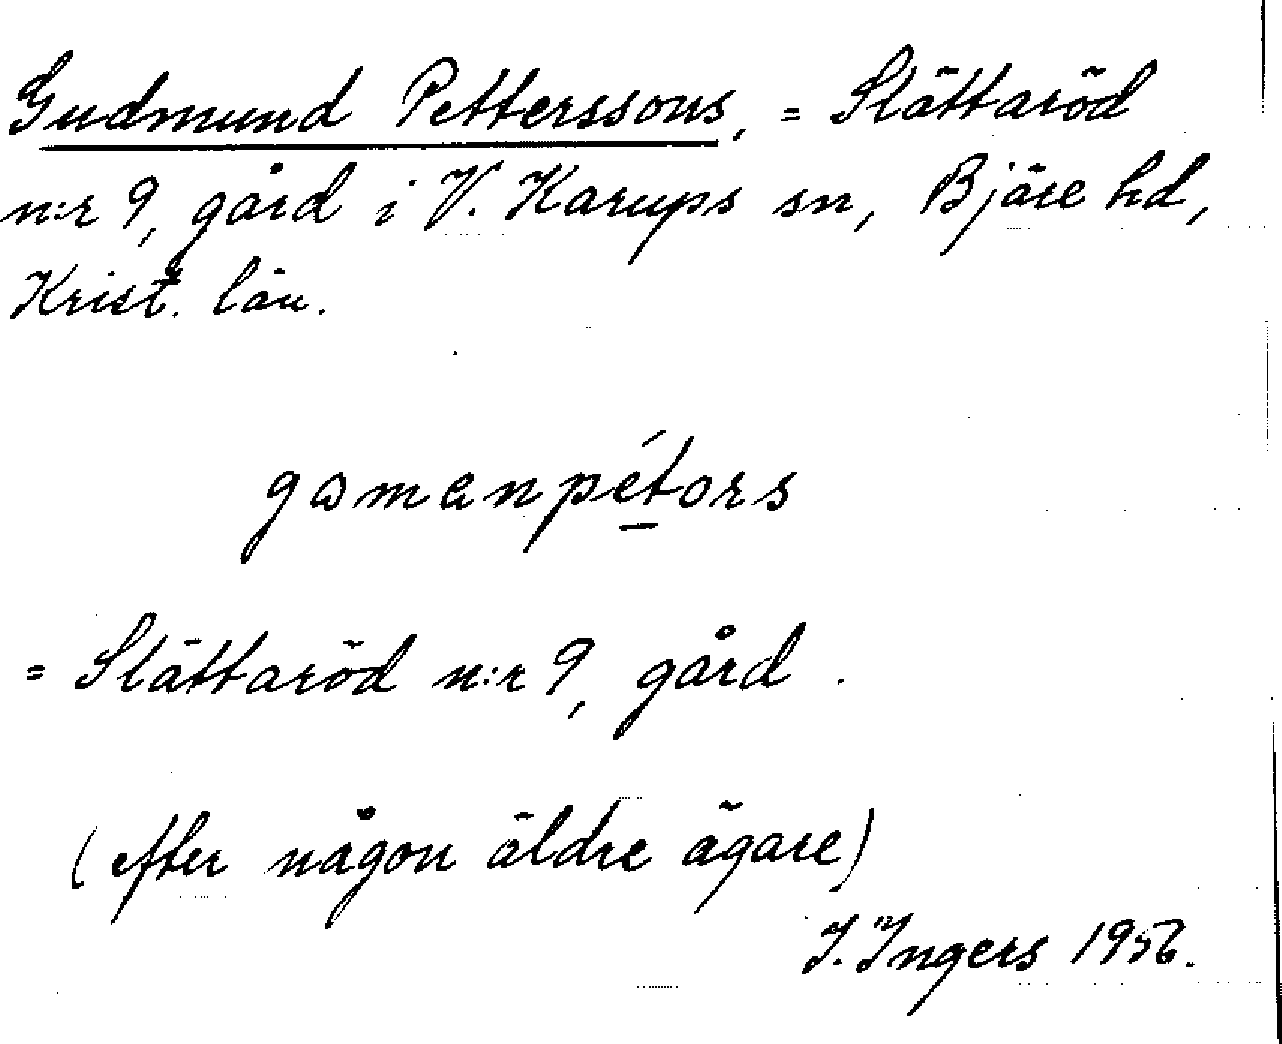 Gudmund Petterssons, = Slättaröd
n:r 9, gård i V. Karups sn, Bjäre hd,
Krist. län.
gɷmənpétors
= Slättaröd n:r 9, gård.
(efter någon äldre ägare)
I. Ingers 1956.